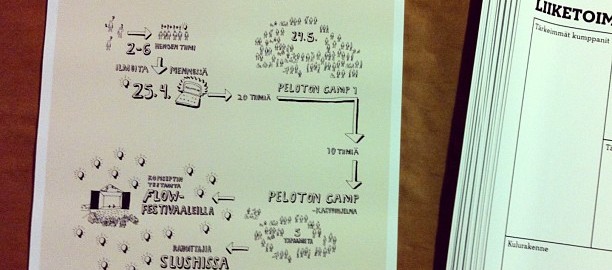 2-6 HENGEN TIIMI
ILMOITA MENNESSÄ
25.4.
20 TIIMIÄ
29.5.
PELOTON CAMP 1
10 TIIMIÄ
PELOTON CAMP
-KASVUOHJELMA
5
TAPAAMISTA
KONSEPTIN
TESTAUSTA
FLOW-
FESTIVAALEILLA
RAHOITTAJIA
SLUSHISSA
LIIKETOIM
Tärkeimmät kumppanit
Kulurakenne